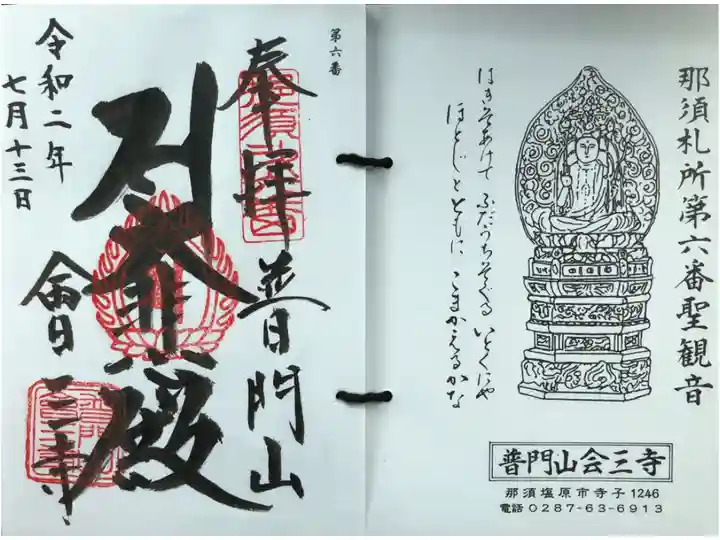 那須札所第六番聖観音
はきそあけて ふだうちそぐる いとくにや
ほとじとともに こまかえるかな
普門山会三寺
那須塩原市寺子1246
電話0287-63-6913
第六番
奉拝 普門山
大悲殿
會三寺
令和二年
七月十三日